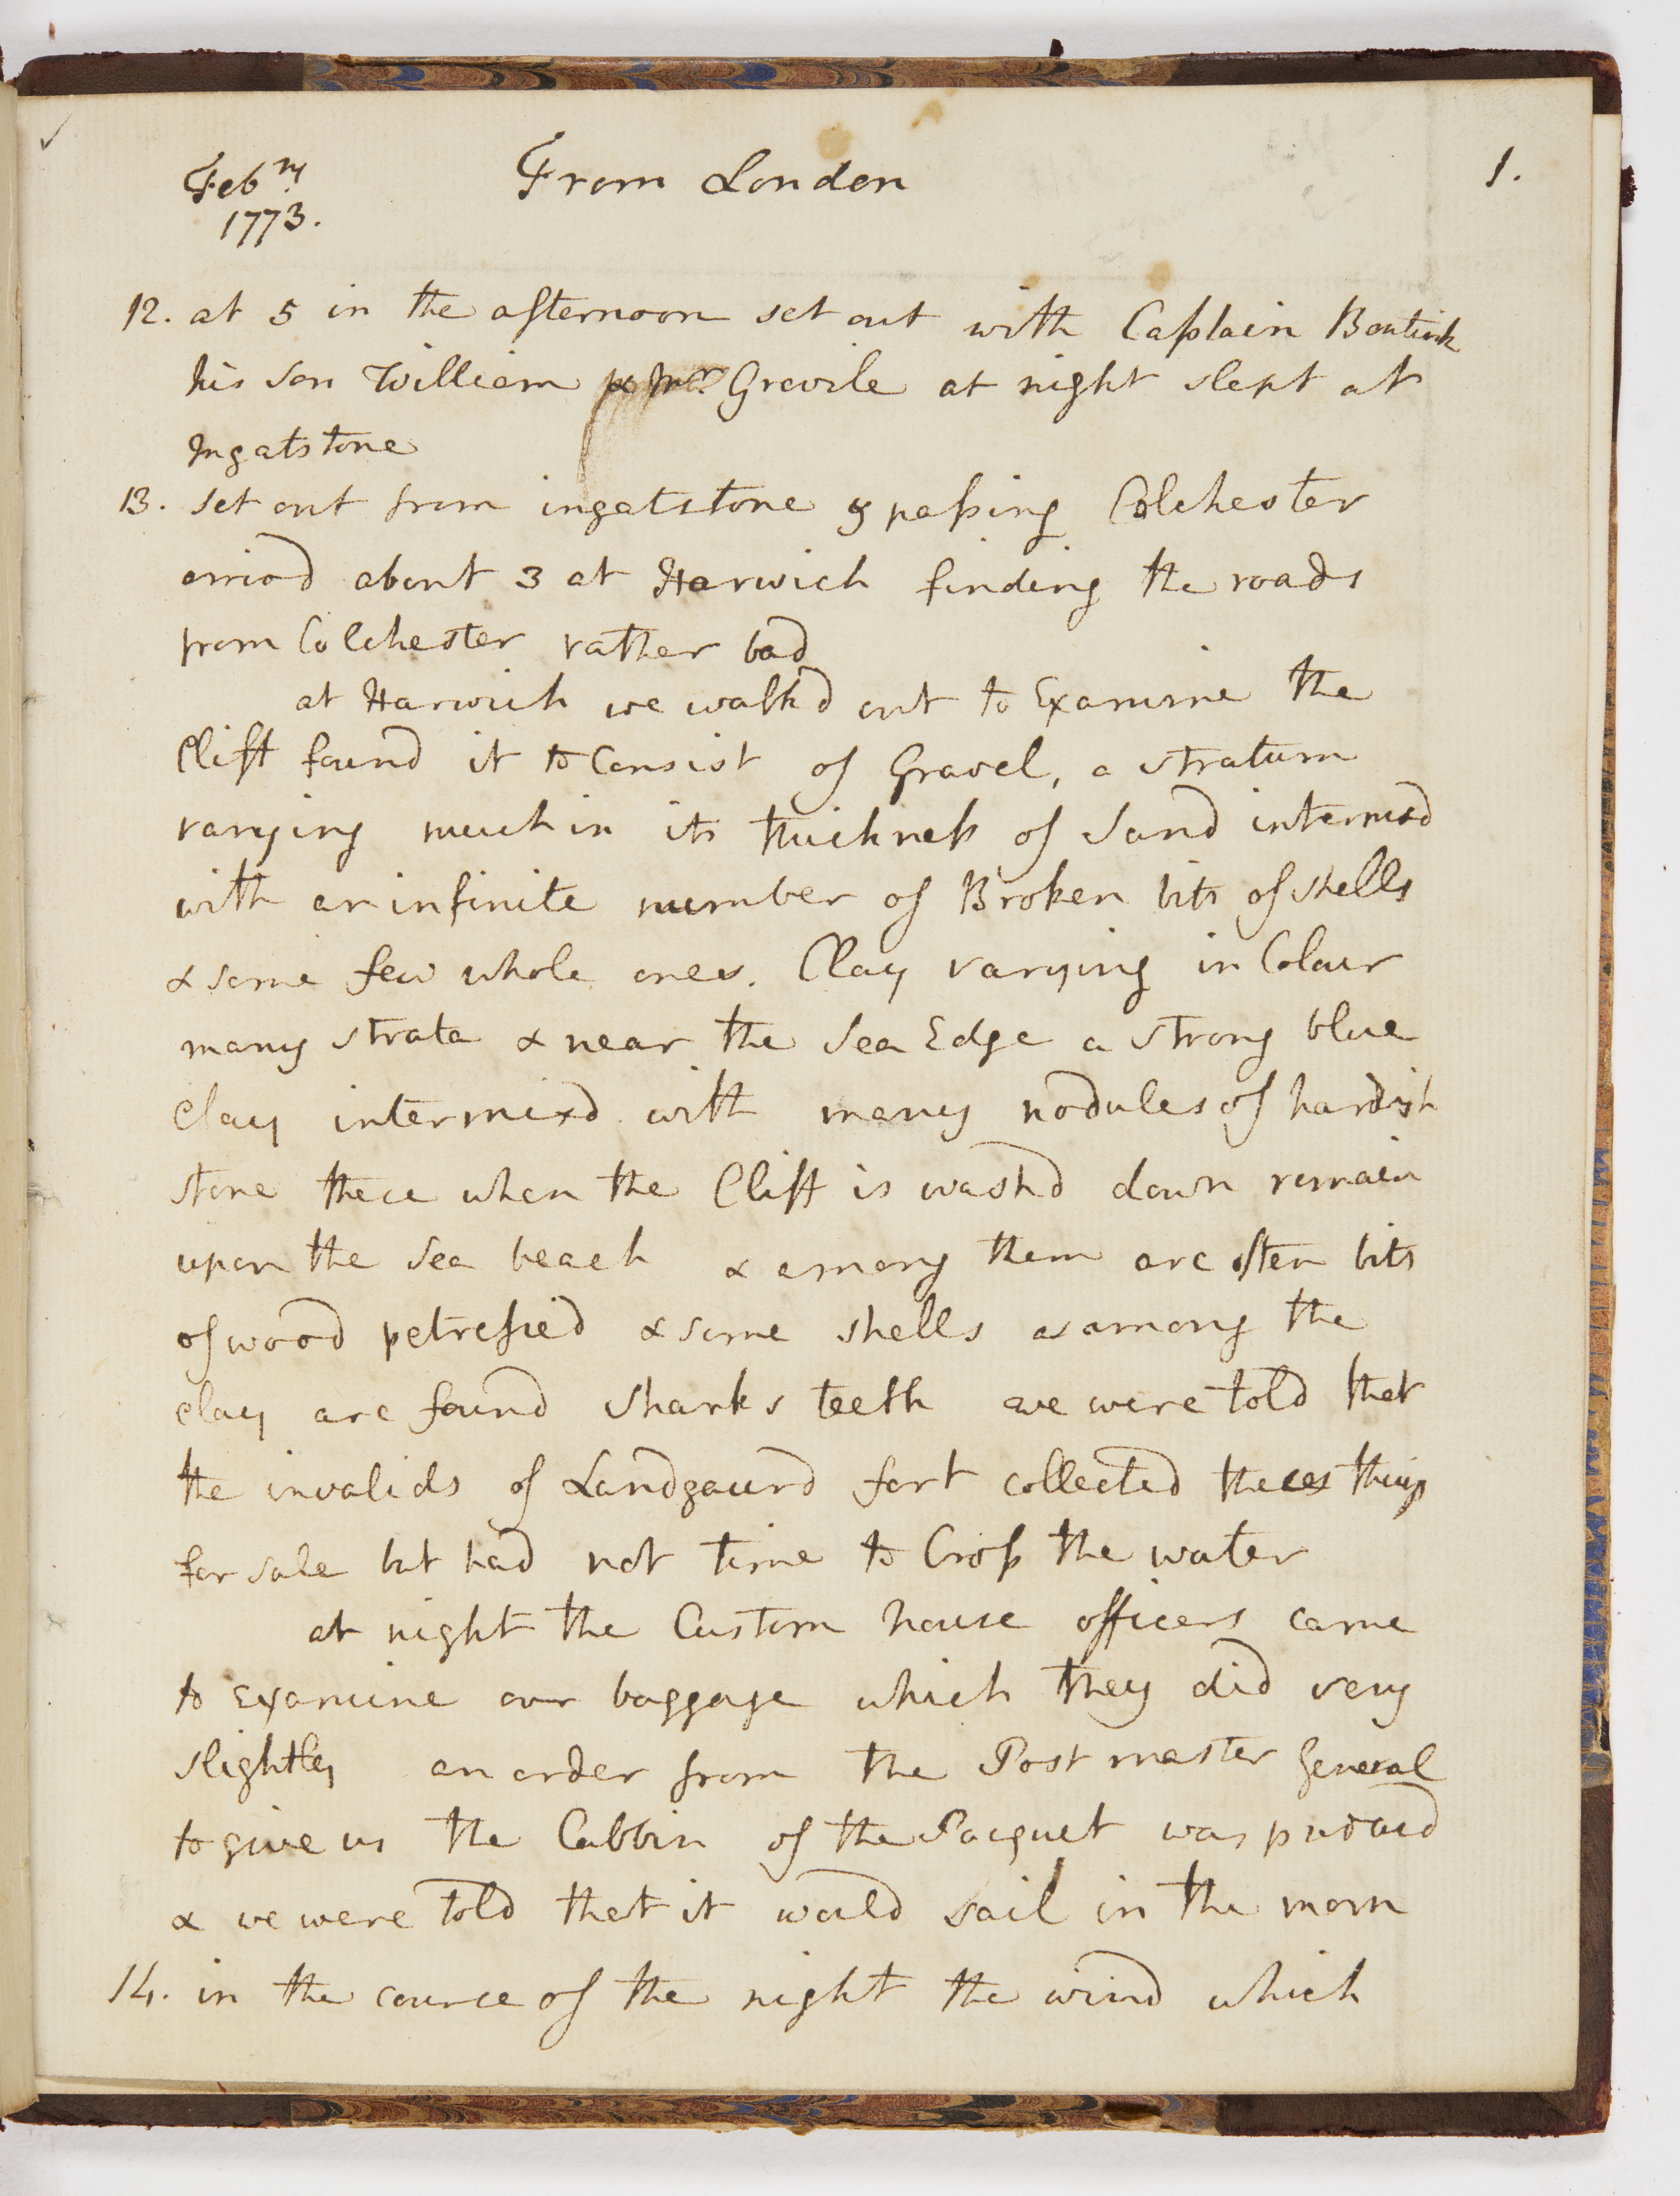 Febry. From London 1.
1773.
12. at 5 in the afternoon set out with Captain Bentink
his son William & Mr. Grevile at night slept at
Ingatstone
13. Set out from ingatstone & passing Colchester
arrivd about 3 at Harwich finding the roads
from Colchester rather bad
at Harwich we walkd out to Examine the
Clift found it to Consist of Gravel, a stratum
varying much in its thickness of Sand intermixd
with an infinite number of Broken bits of shells
& some few whole ones. Clay varying in Colour
many strata & near the Sea Edge a strong blue
clay intermixd with many nodules of hardish
stone thece when the Clift is washd down remain
upon the Sea beach & among them are often bits
of wood petrefied & some shells as among the
clay are found sharks teeth we were told that
the invalids of Landgaurd fort collected theces things
for sale but had not time to Cross the water
at night the Custom house officers came
to Examine our baggage which they did very
slightly an order from the Post master General
to give us the Cabbin of the Pacquet was producd
& we were told that it would sail in the morn
14. in the cource of the night the wind which